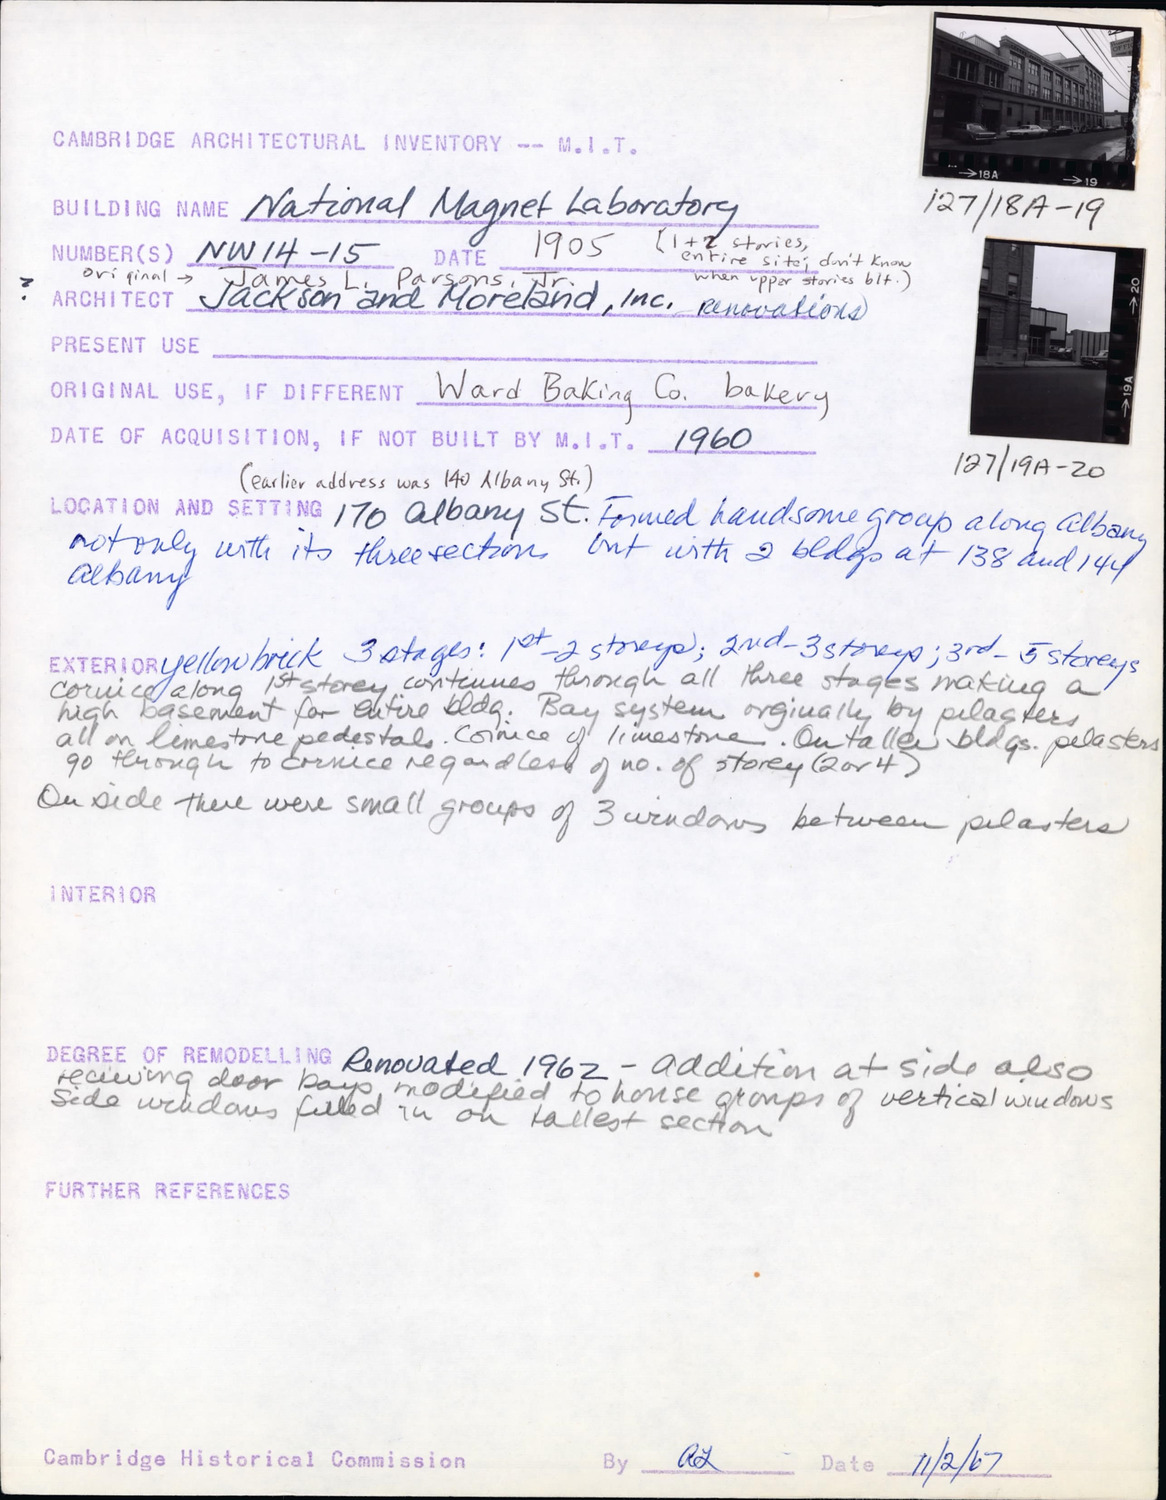 →18A →19
127/18A-19
CAMBRIDGE ARCHITECTURAL INVENTORY -- M.I.T.
BUILDING NAME National Magnet Laboratory
NUMBER(S) NW14-15 DATE 1905 (1+2 stories,
entire site; don't know
when upper stories blt.)
original → James L. Parsons, Jr.
? ARCHITECT Jackson and Moreland, Inc. renovations)
→19A →20
127/19A-20
PRESENT USE
ORIGINAL USE, IF DIFFERENT Ward Baking Co. bakery
DATE OF ACQUISITION, IF NOT BUILT BY M.I.T. 1960
(earlier address was 140 Albany St.)
LOCATION AND SETTING 170 Albany St. Formed handsome group along Albany
not only with its three sections but with 2 bldgs at 138 and 144
Albany
EXTERIOR yellow brick 3 stages: 1st-2 storeys; 2nd-3 storeys; 3rd- 5 storeys
cornice along 1st storey continues through all three stages making a
high basement for entire bldg. Bay system orginally by pilasters
all on limestone pedestals. Cornice of limestone. On taller bldgs. pilasters
go through to cornice regardless of no. of storey (2 or 4)
On side there were small groups of 3 windows between pilasters
INTERIOR
DEGREE OF REMODELLING Renovated 1962 - addition at side also
recieving door bays modified to house groups of vertical windows
Side windows filled in on tallest section
FURTHER REFERENCES
Cambridge Historical Commission By Date 11/2/67